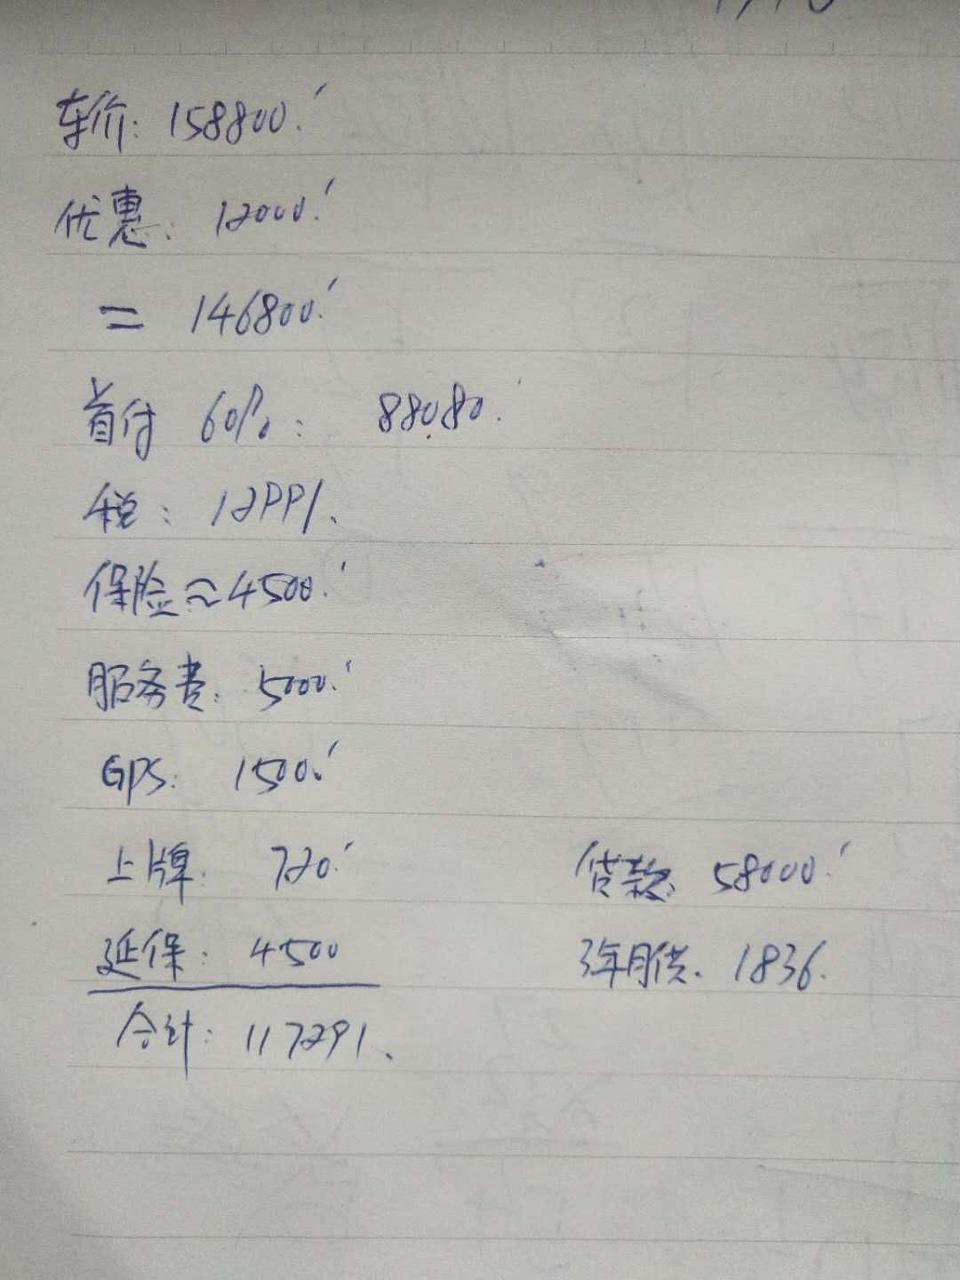 车价: 158800.
优惠: 12000.
= 146800.
首付 60%: 88080.
税: 12991.
保险≈4500.
服务费: 5000.
GPS: 1500.
上牌: 720.
贷款: 58000.
延保: 4500
3年月供. 1836.
合计: 117291.